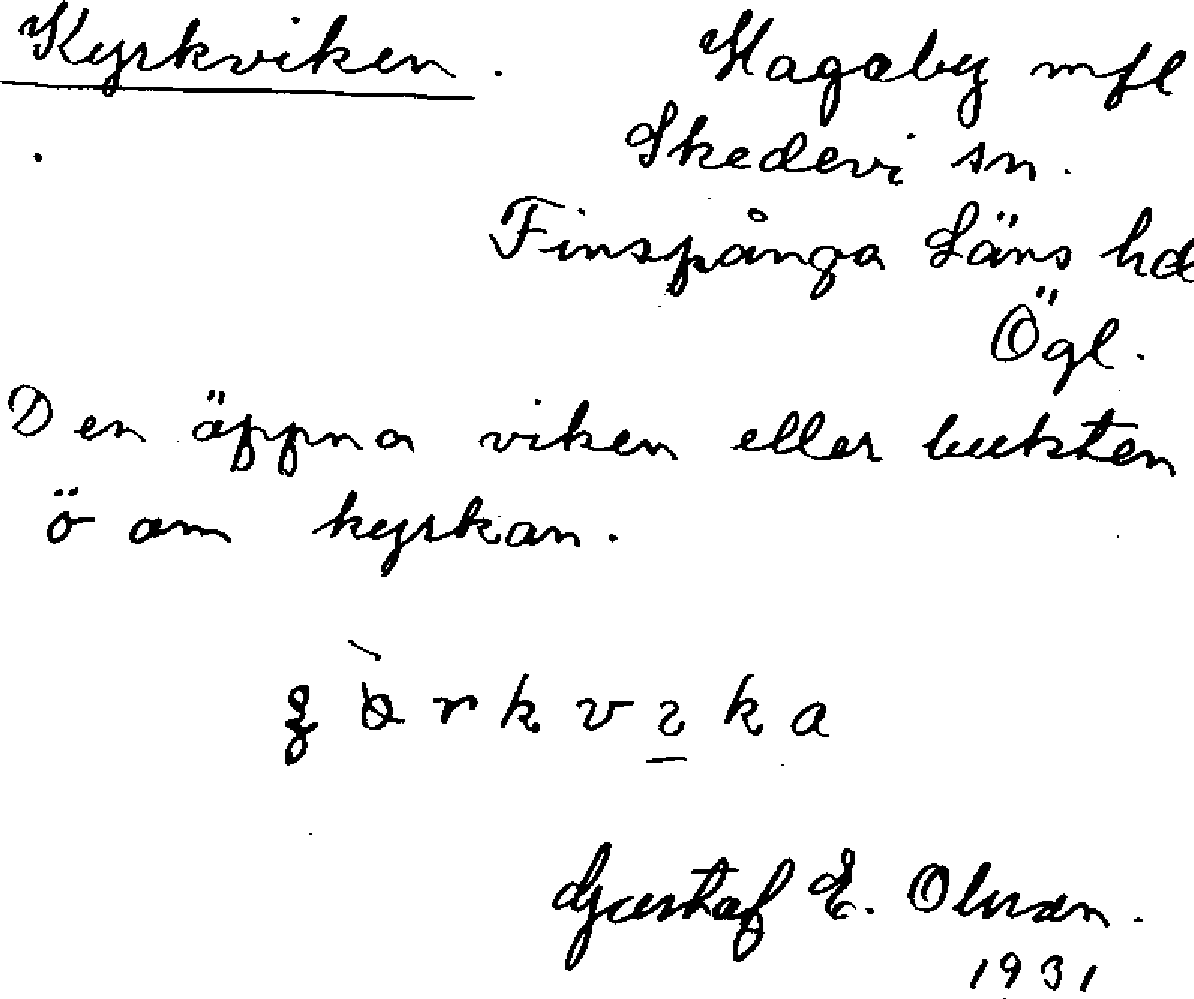 Kyrkviken. Hagaby mfl
Skedevi sn.
Finspånga Läns hd
Ögl.
Den äppna viken eller bukten
ö om kyrkan.
Gustaf E. Olsson.
1931